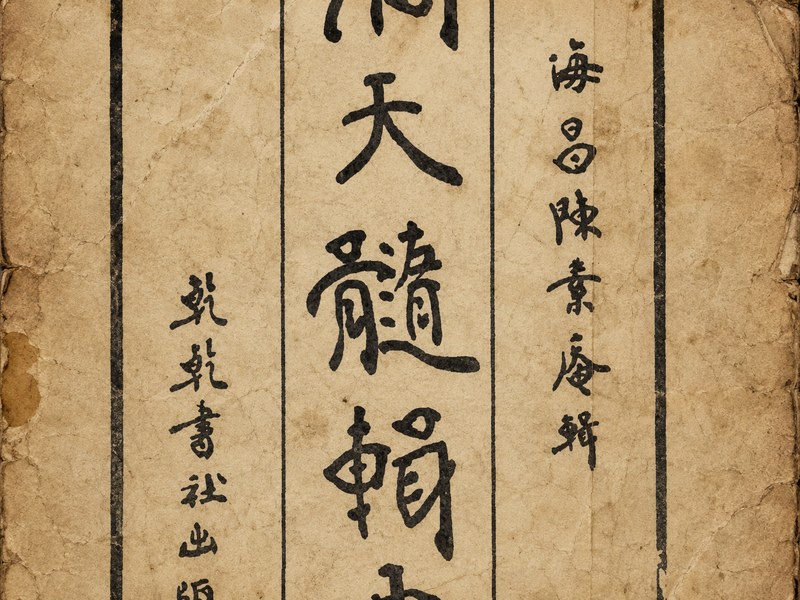 海昌陳素庵輯
天髓輯
乾乾書社出版